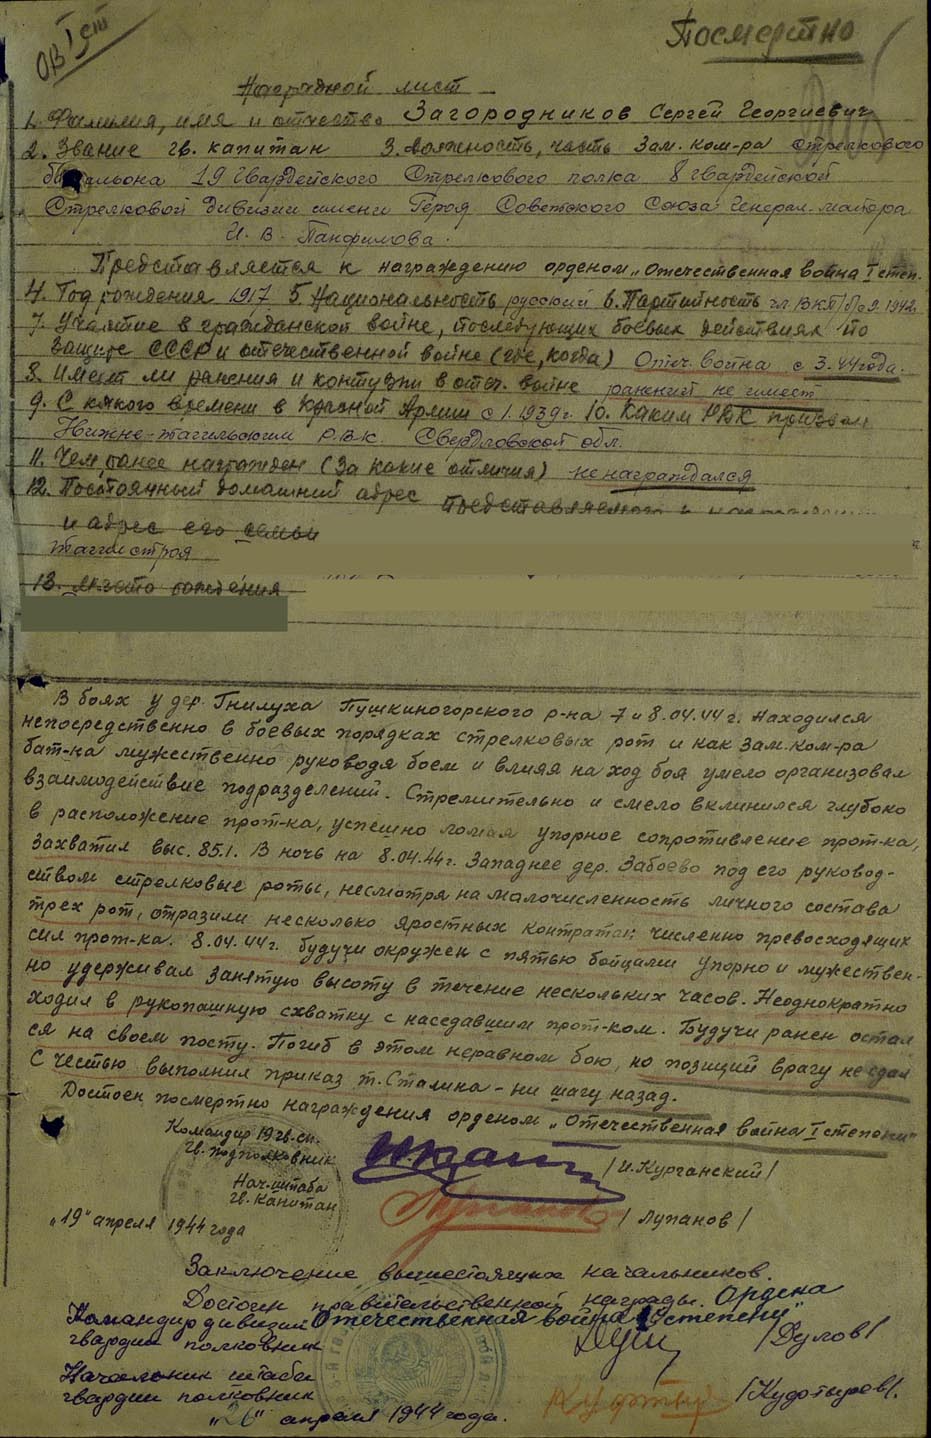 ОВ I ст
Посмертно
Наградной лист
1. Фамилия, имя и отчество Загородников Сергей Георгиевич
2. Звание гв. капитан 3. Должность, часть Зам. ком-ра стрелкового
батальона 19 Гвардейского Стрелкового полка 8 гвардейской
Стрелковой Дивизии имени Героя Советского Союза Генерал-майора
И. В. Панфилова.
Представляется к награждению орденом "Отечественная война I степ.
4. Год рождения 1917 5. Национальность русский 6. Партийность чл ВКП/б с 1942
7. Участие в гражданской войне, последующих боевых действиях по
защите СССР и отечественной войне (где, когда) Отеч. война с 3.44 года.
8. Имеет ли ранения и контузии в отеч. войне ранений не имеет
9. С какого времени в Красной Армии с 1.1939 г. 10. Каким РВК призван
Нижне-Тагильским Р.В.К. Свердловской обл.
11. Чем ранее награжден (за какие отличия) не награждался
12. Постоянный домашний адрес представляемого к
и адрес его семьи
Тагилстроя
13. Место рождения
В боях у дер. Гнилуха Пушкиногорского р-на 7 и 8.04.44 г. находился
непосредственно в боевых порядках стрелковых рот и как зам. ком-ра
бат-на мужественно руководя боем и влияя на ход боя умело организовал
взаимодействие подразделений. Стремительно и смело вклинился глубоко
в расположение прот-ка, успешно ломая упорное сопротивление прот-ка,
захватил выс. 85.1. В ночь на 8.04.44 г. западнее дер. Забоево под его руковод-
ством стрелковые роты, несмотря на малочисленность личного состава
трех рот, отразили несколько яростных контратак численно превосходящих
сил прот-ка. 8.04.44 г. будучи окружен с пятью бойцами упорно и мужествен-
но удерживал занятую высоту в течение нескольких часов. Неоднократно
ходил в рукопашную схватку с наседавшим прот-ком. Будучи ранен остал
ся на своем посту. Погиб в этом неравном бою, но позиций врагу не сдал
С честью выполнил приказ т. Сталина - ни шагу назад.
Достоен посмертно награждения орденом "Отечественная война I степени"
Командир 19 гв. сп.
гв. подполковник /И. Курганский/
Нач. штаба
гв. капитан /Лупанов/
"19" апреля 1944 года
Заключение вышестоящих начальников.
Достоин правительственной награды Ордена
Командир дивизии Отечественная война I степени"
гвардии полковник /Дулов/
Начальник штаба
гвардии полковник /Кудотыров/.
"26" апреля 1944 года.